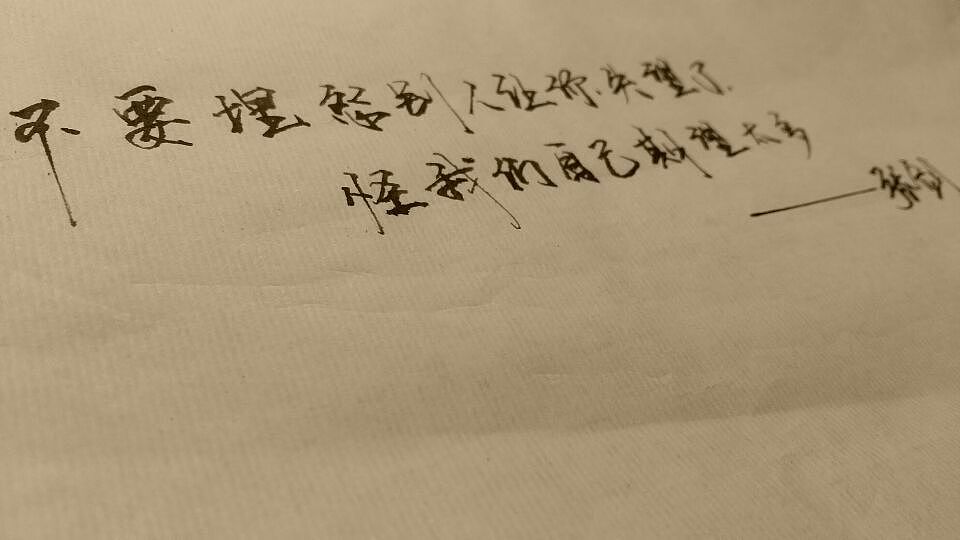 不要埋怨别人让你失望了.
怪我们自己期望太多